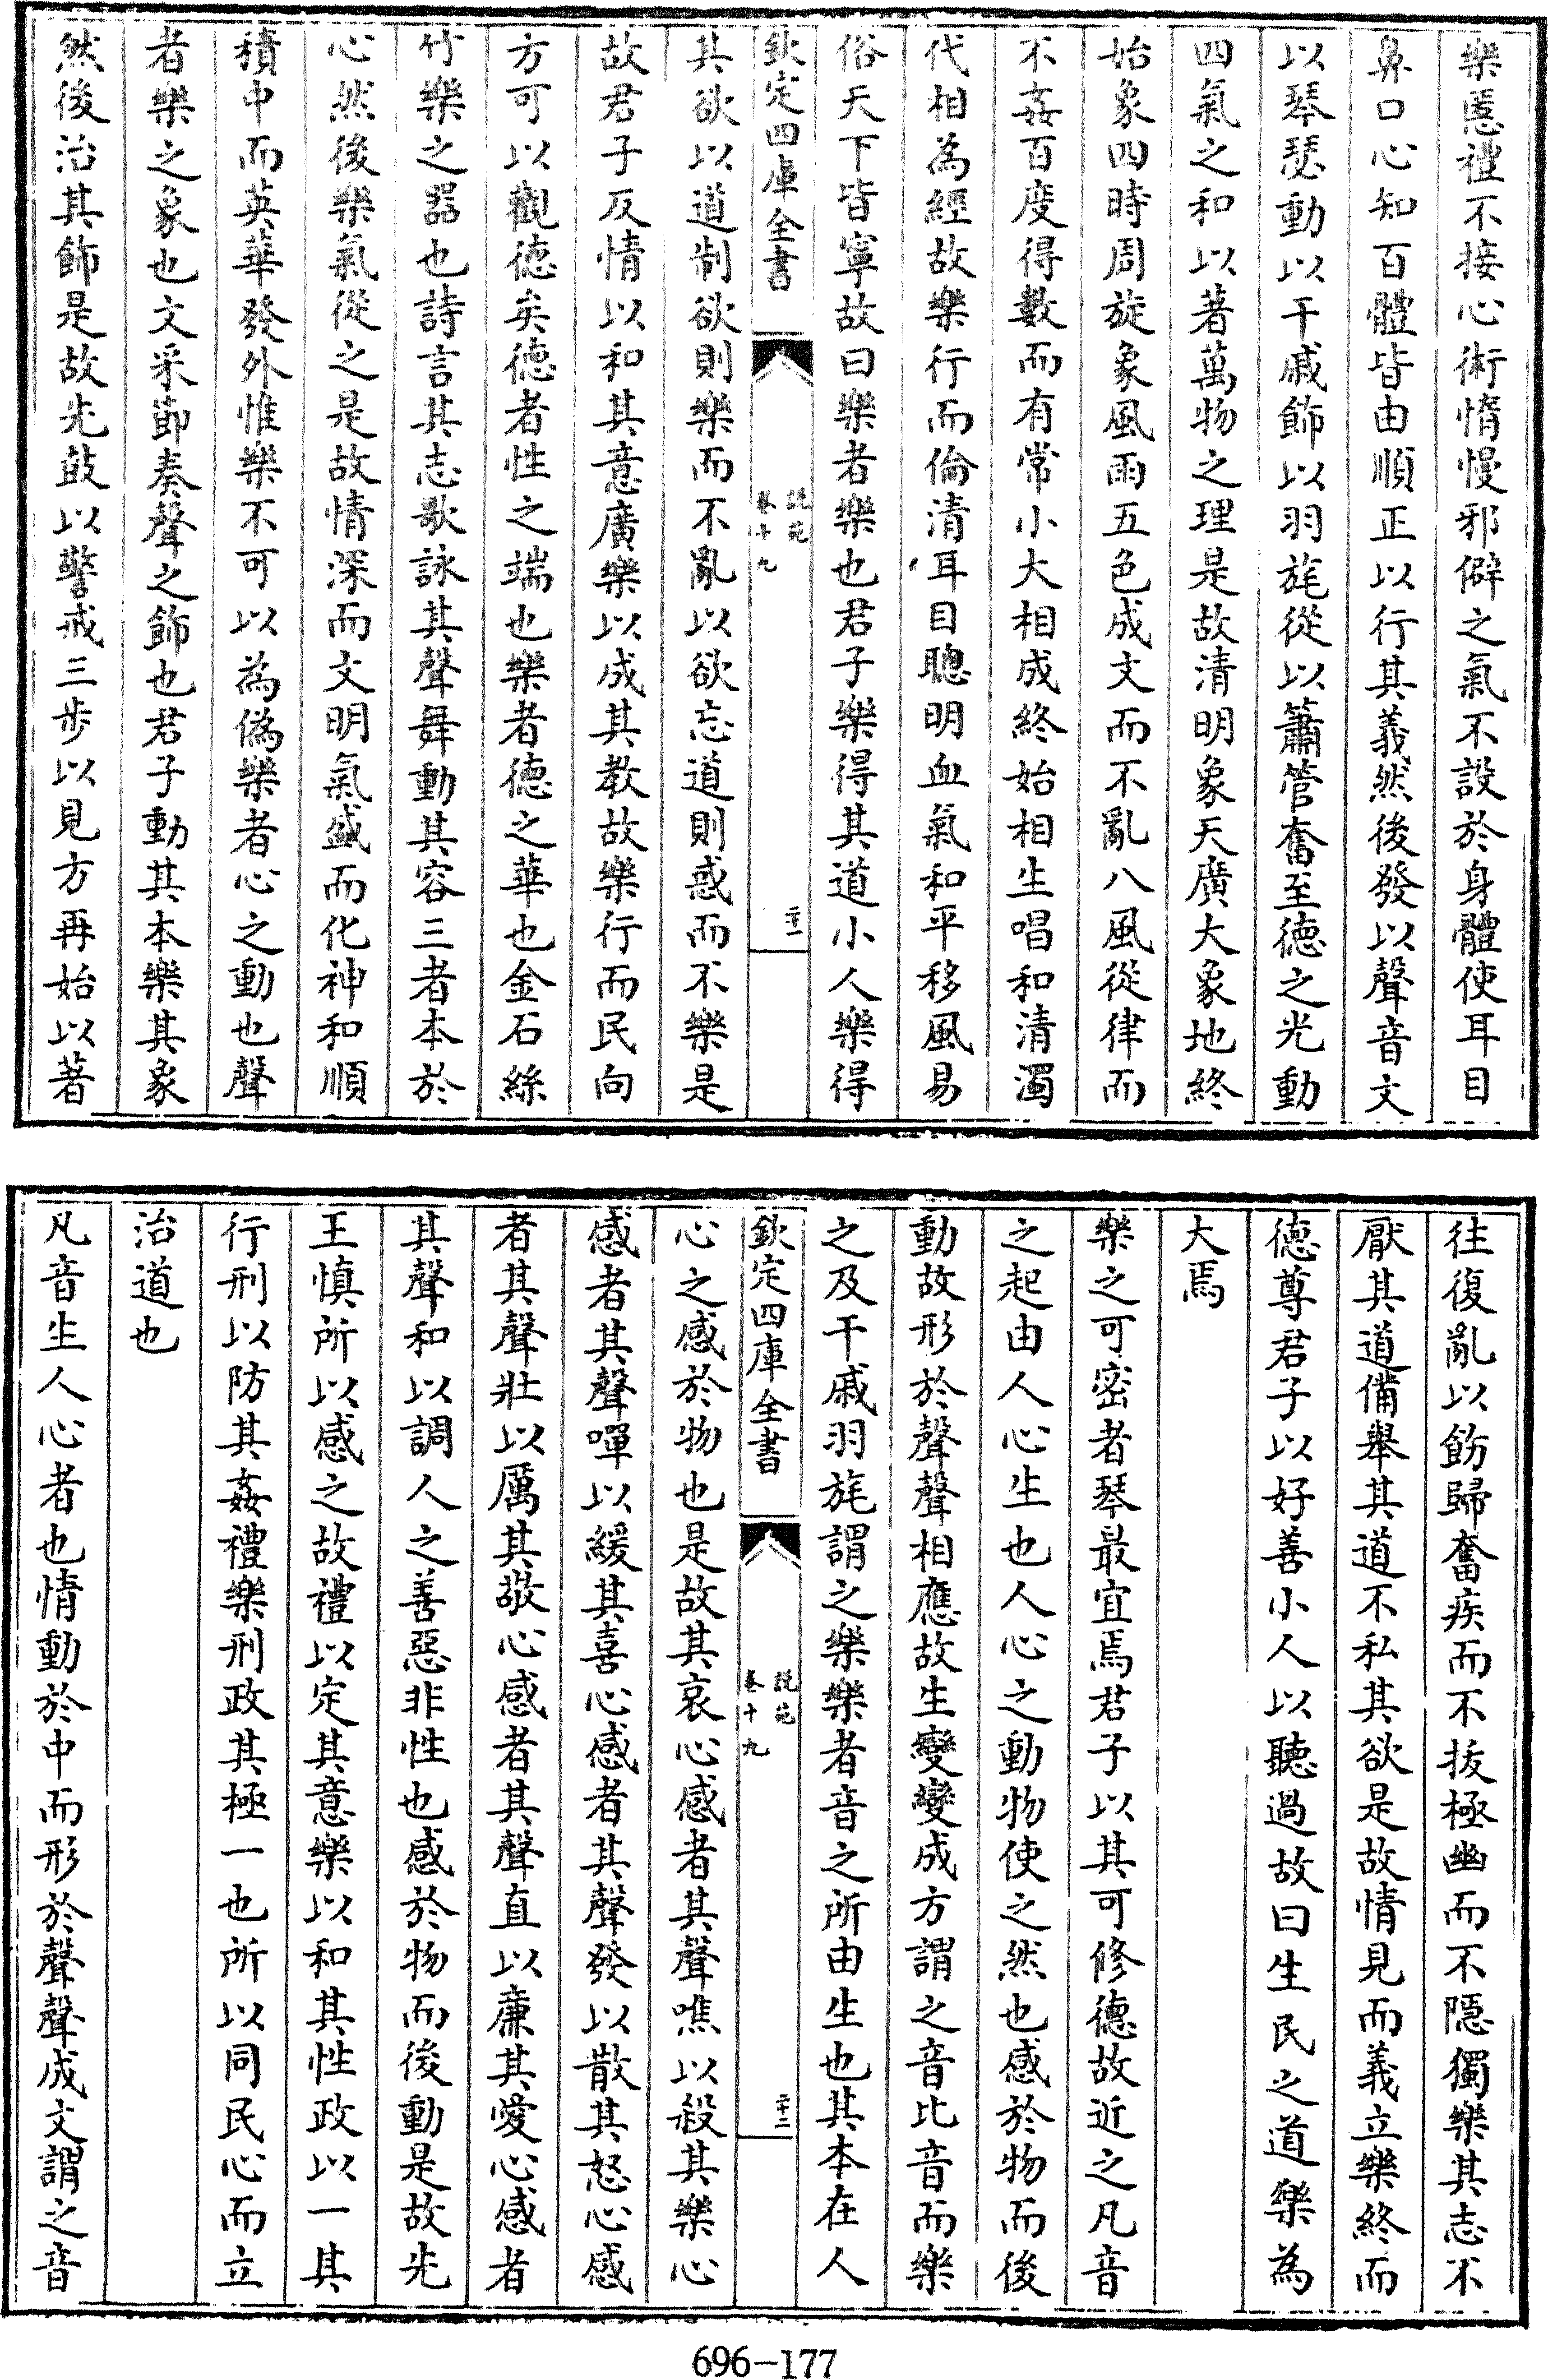 樂慝禮不接心術惰慢邪僻之氣不設於身體使耳目
鼻口心知百體皆由順正以行其義然後發以聲音文
以琴瑟動以干戚飾以羽旄從以簫管奮至德之光動
四氣之和以著萬物之理是故清明象天廣大象地終
始象四時周旋象風雨五色成文而不亂八風從律而
不姦百度得數而有常小大相成終始相生唱和清濁
代相為經故樂行而倫清耳目聰明血氣和平移風易
俗天下皆寧故曰樂者樂也君子樂得其道小人樂得
欽定四庫全書
說苑
卷十九
二十一
其欲以道制欲則樂而不亂以欲忘道則惑而不樂是
故君子反情以和其意廣樂以成其教故樂行而民向
方可以觀德矣德者性之端也樂者德之華也金石絲
竹樂之器也詩言其志歌詠其聲舞動其容三者本於
心然後樂氣從之是故情深而文明氣盛而化神和順
積中而英華發外惟樂不可以為偽樂者心之動也聲
者樂之象也文采節奏聲之飾也君子動其本樂其象
然後治其飾是故先鼓以警戒三步以見方再始以著
往復亂以飭歸奮疾而不拔極幽而不隱獨樂其志不
厭其道備舉其道不私其欲是故情見而義立樂終而
德尊君子以好善小人以聽過故曰生民之道樂為
大焉
樂之可密者琴最宜焉君子以其可修德故近之凡音
之起由人心生也人心之動物使之然也感於物而後
動故形於聲聲相應故生變變成方謂之音比音而樂
之及干戚羽旄謂之樂樂者音之所由生也其本在人
欽定四庫全書
說苑
卷十九
二十二
心之感於物也是故其哀心感者其聲噍以殺其樂心
感者其聲嘽以緩其喜心感者其聲發以散其怒心感
者其聲壯以厲其敬心感者其聲直以廉其愛心感者
其聲和以調人之善惡非性也感於物而後動是故先
王慎所以感之故禮以定其意樂以和其性政以一其
行刑以防其姦禮樂刑政其極一也所以同民心而立
治道也
凡音生人心者也情動於中而形於聲聲成文謂之音
696-177